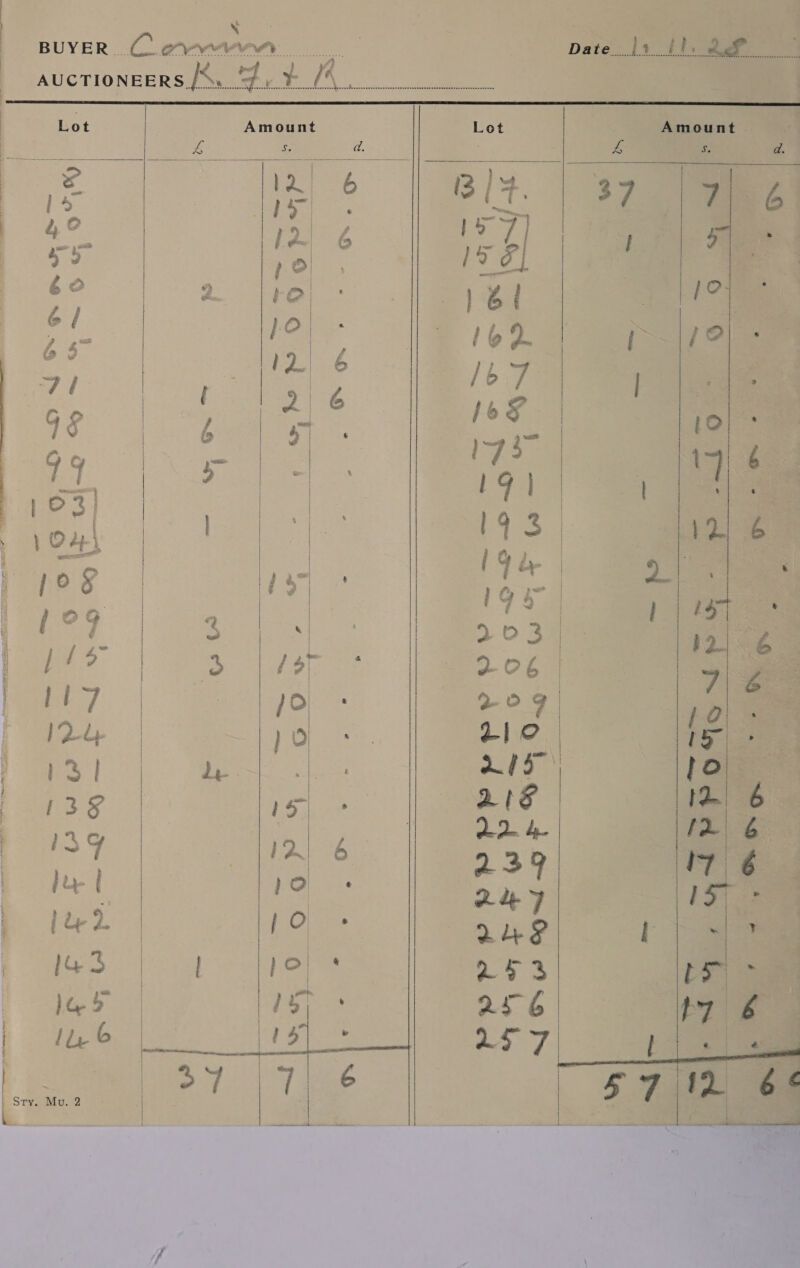 BUYER Date 1? 11. 28
AUCTIONEERS K. F. & R.
Lot Amount
£ s. d.
8 12 6
15 15 .
40 12 6
55 10 .
60 2 10 .
61 10 .
65 12 6
71 1 2 6
98 6 5 .
99 5 - .
103
104 1 . .
108 15 .
109 3 .
115 3 15 .
117 10 .
124 10 .
131 4 . .
138 15 .
139 12 6
141 10 .
142 10 .
143 1 10 .
145 15 .
146 15 .
37 7 6
Sty. Mu. 2
Lot Amount
£ s. d.
B/F. 37 7 6
157
158 1 5 .
161 10 .
162 1 10 .
167 1 . .
168 10 .
175 17 6
191 1 . .
193 12 6
194 2 . .
195 1 15 .
203 12 6
206 7 6
209 10 .
210 15 .
215 10
218 12 6
224 12 6
239 17 6
247 15 .
248 1 . .
253 15 .
256 17 6
257 1 . .
57 12 6